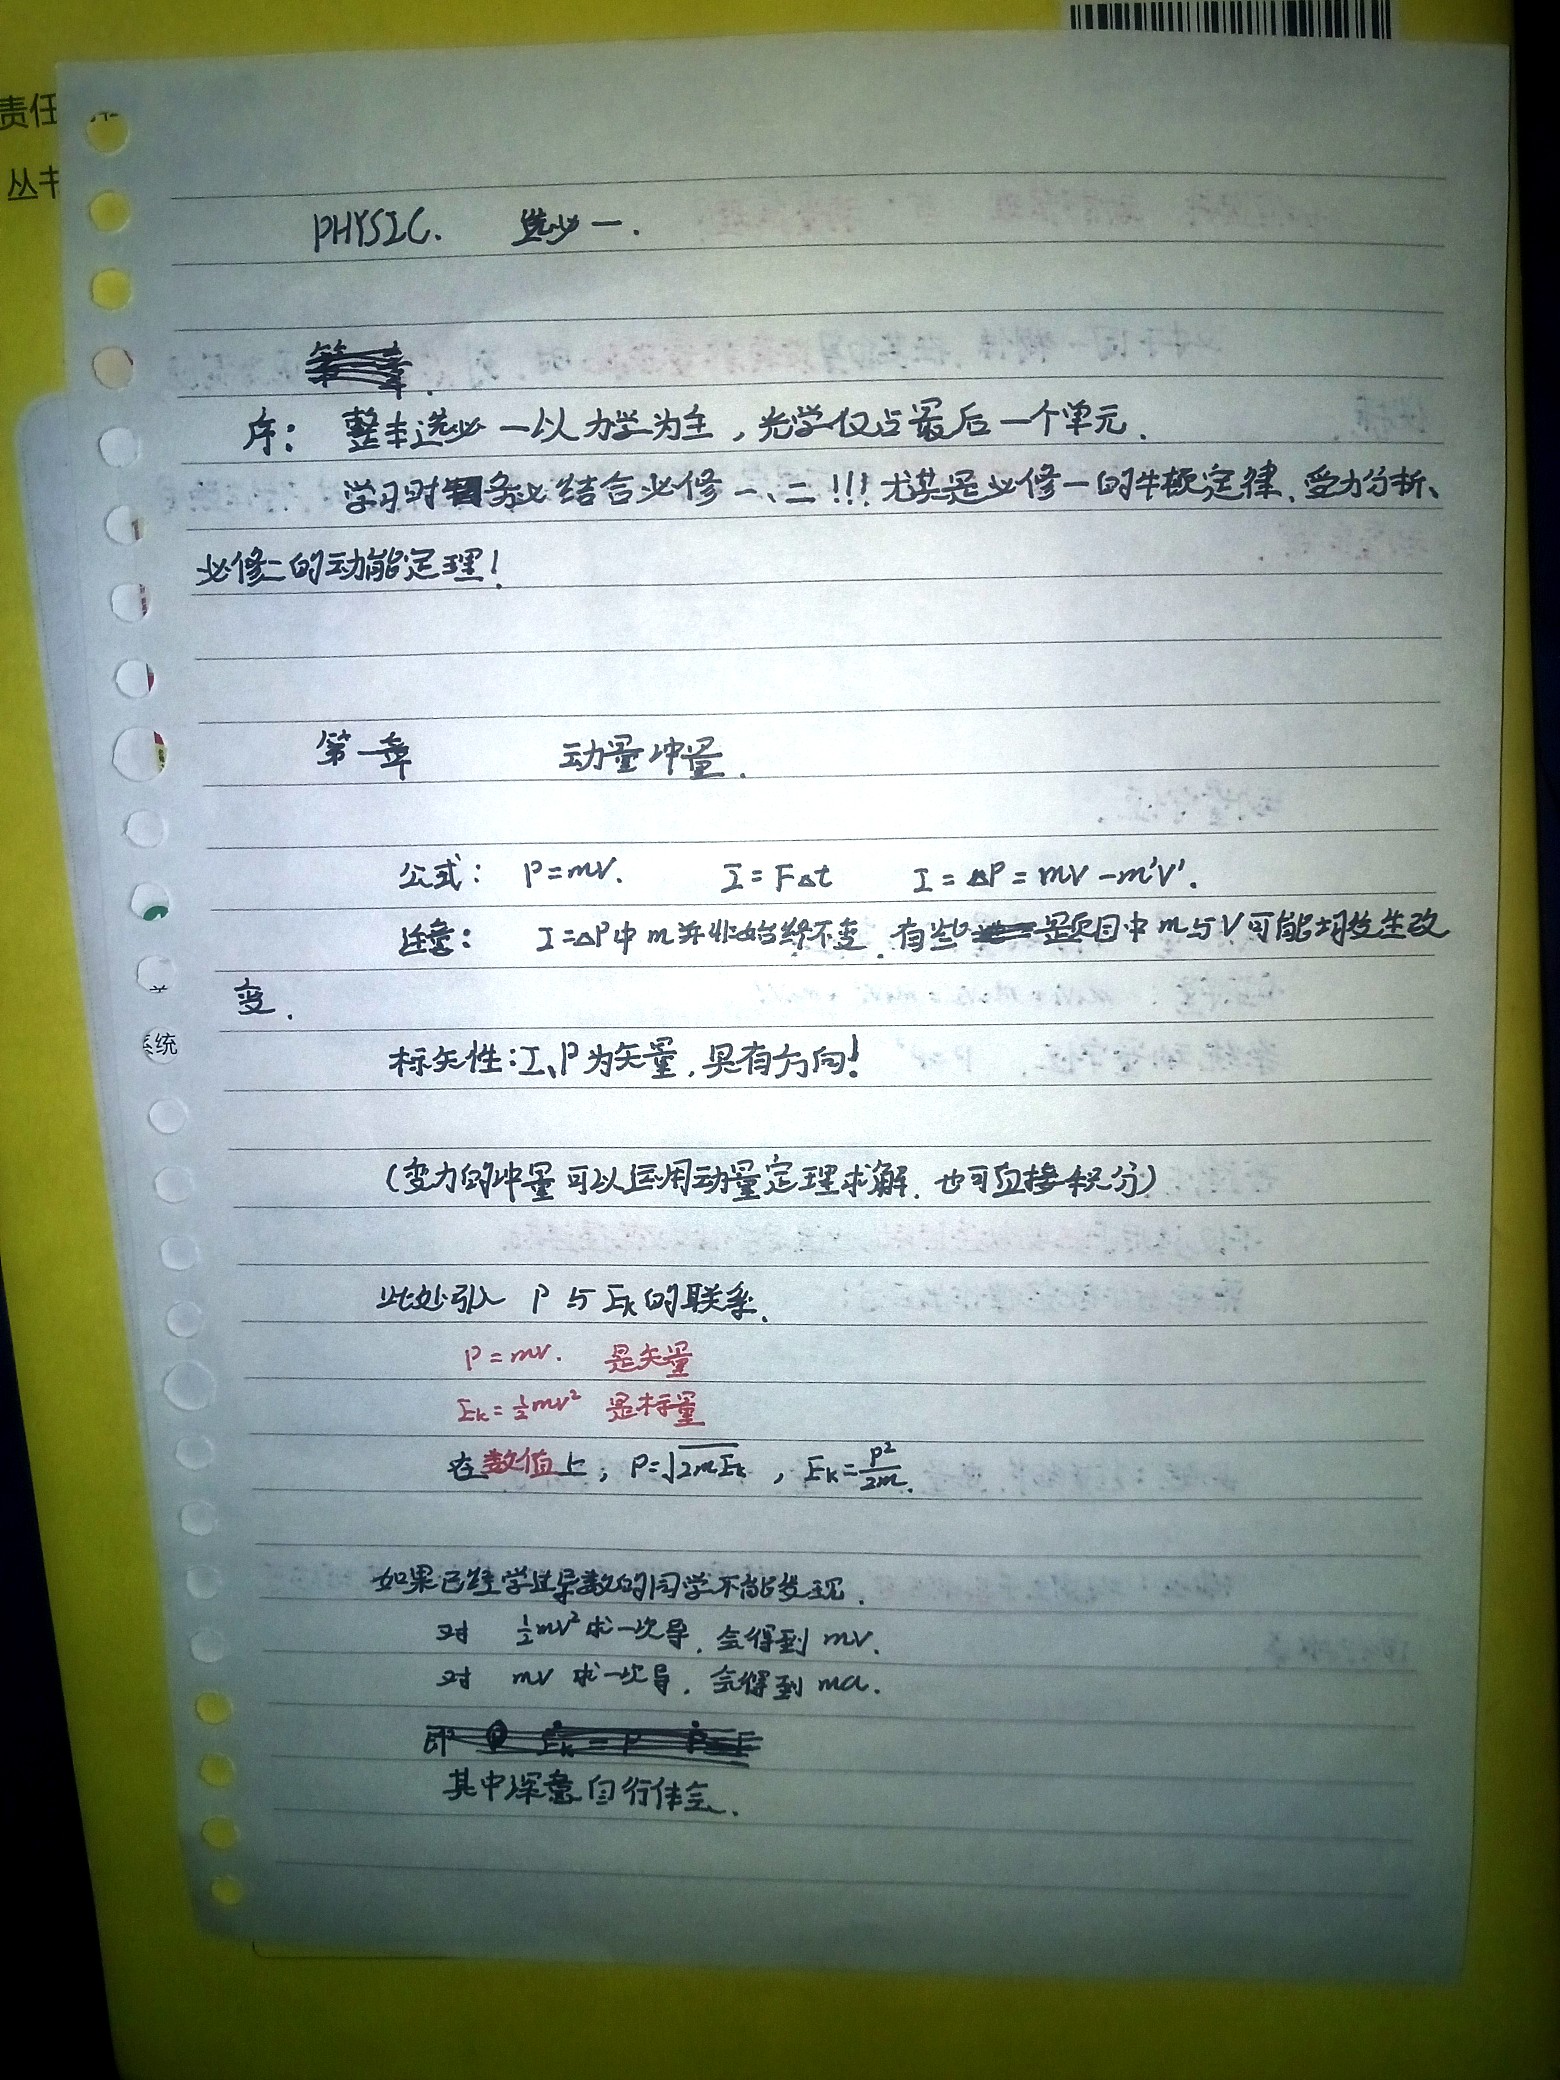 责任
丛书
PHYSIC. 选必一.
序: 整本选必一以力学为主,光学仅占最后一个单元.
学习时务必结合必修一、二!!!尤其是必修一的牛顿定律、受力分析、
必修二的动能定理!
第一章 动量冲量.
公式: P=mv. I=F△t I=△P=mv-m'v'.
注意: I=△P中m并非始终不变.有些题目中m与v可能均发生改
变.
标矢性:I、P为矢量,具有方向!
(变力的冲量可以运用动量定理求解.也可直接积分)
此处引入 P与Ek的联系.
P=mv. 是矢量
Ek=½mv² 是标量
在数值上; P=√2mEk , Ek=P²/2m.
如果已经学过导数的同学不能发现.
对 ½mv²求一次导.会得到mv.
对 mv求一次导.会得到ma.
其中深意自行体会.
系统